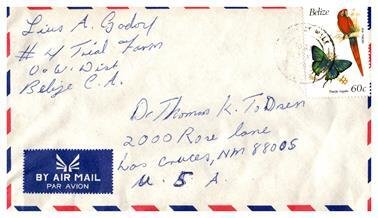 Luis A. Godoy
# 4 Trial Farm
O. W. Dist
Belize C. A.
Belize
60c
Dr Thomas K. Todsen
2000 Rose lane
Las Cruces, NM 88005
U. S. A.
BY AIR MAIL
PAR AVION